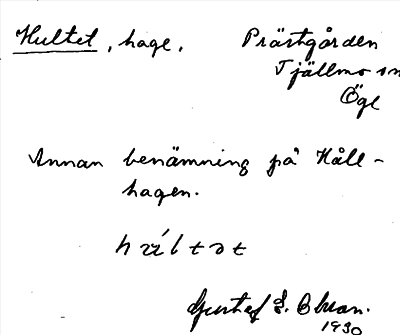 Hultet, hage. Prästgården
Tjällmo sn
Ögl
Annan benämning på Håll-
hagen.
Gustaf E. Olsson.
1930